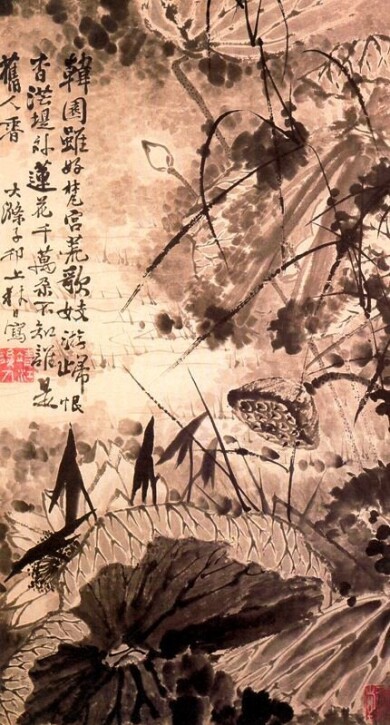 韓園雖好梵宮荒歌妓游此歸恨
杳洪堤計蓮花千萬朵不知誰是
舊人香
大滌子邗上秋日寫